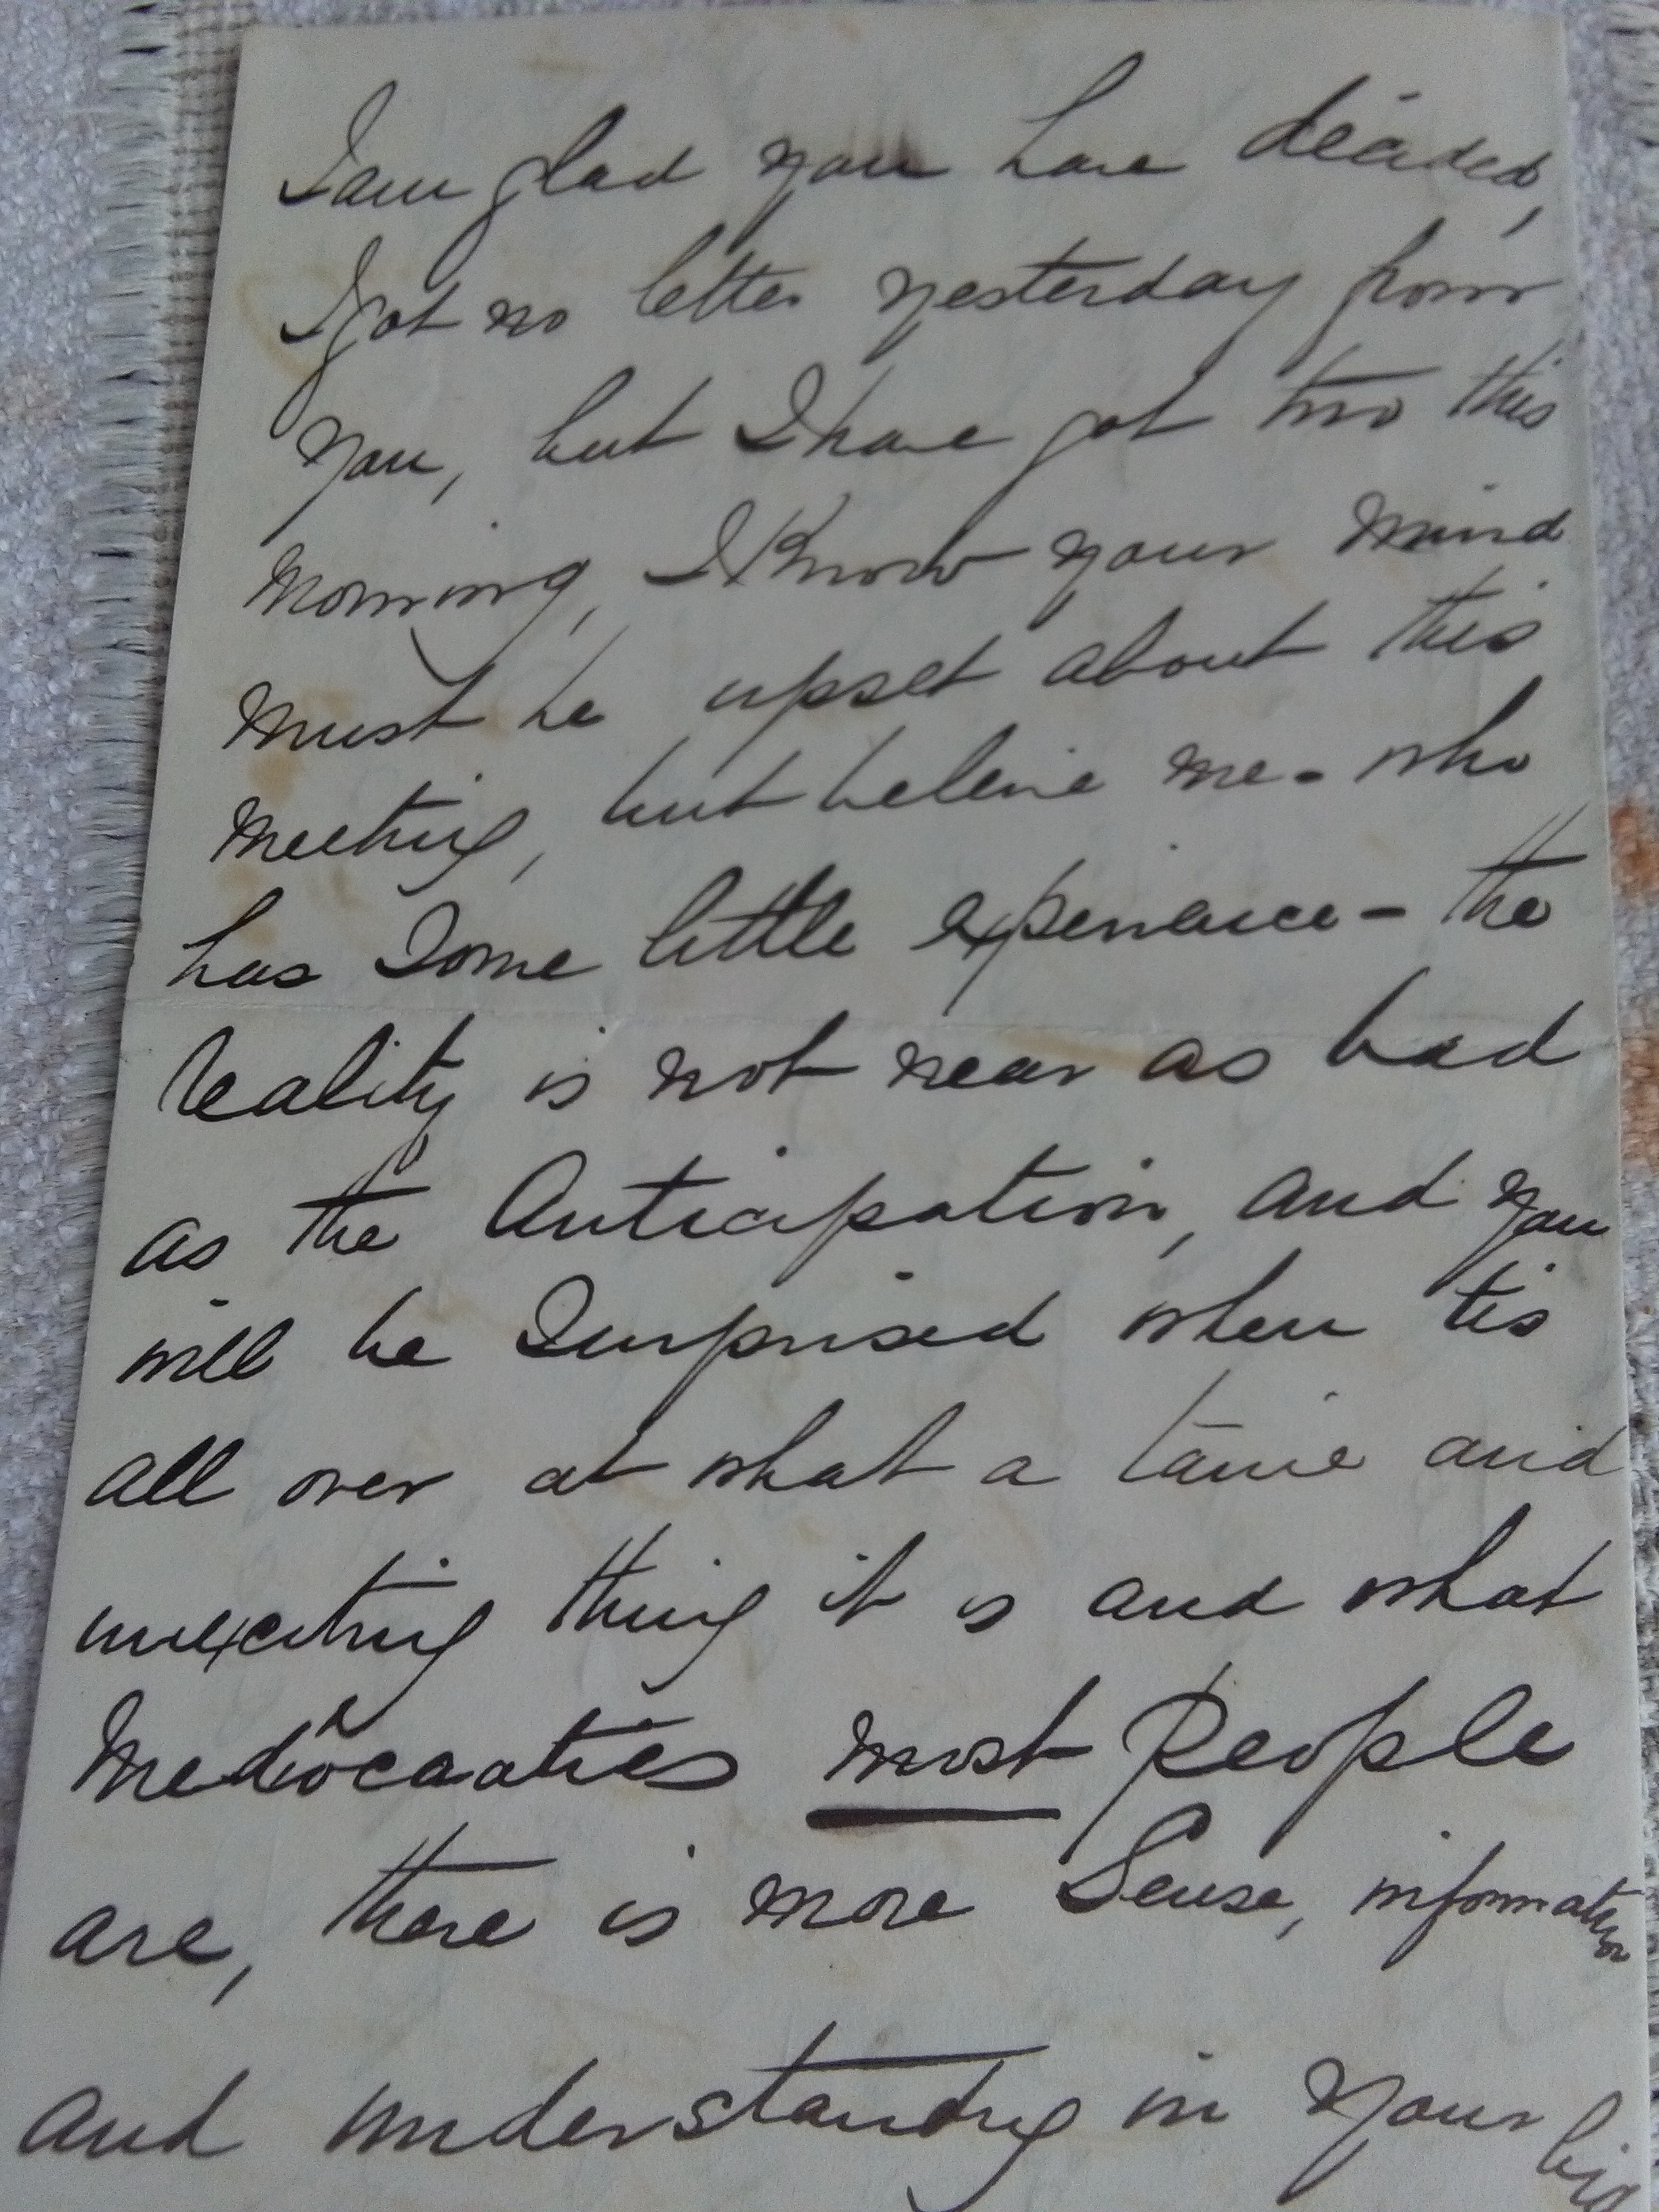 I am glad you have decided,
I got no letter yesterday from
you, but I have got two this
morning, I know your mind
must be upset about this
meeting, but believe me - who
has some little experience - the
reality is not near as bad
as the Anticipation, and you
will be surprised when tis
all over at what a tame and
unexciting thing it is and what
most People
are, there is more sense, information
and understanding in your big